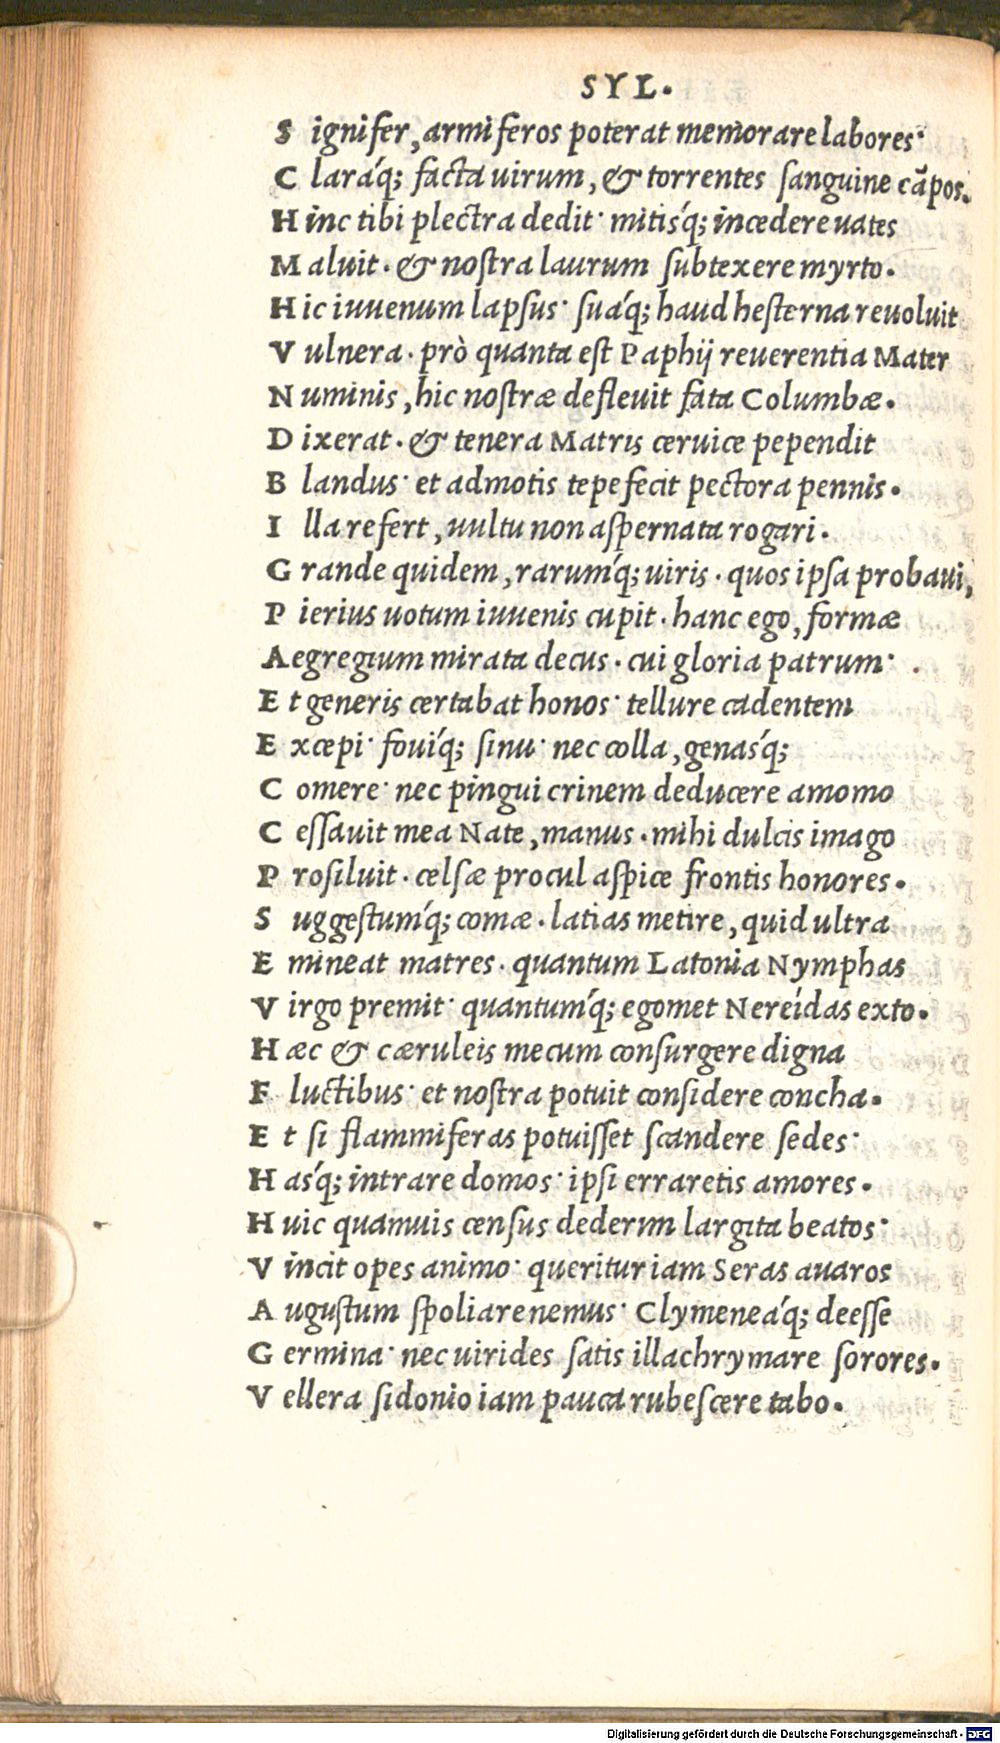 SYL.
S ignifer, armiferos poterat memorare labores·
C laráq́; facta uirum, & torrentes sanguine cãpos.
H inc tibi plectra dedit· mitisq́; incedere uates
M aluit. & nostra laurum subtexere myrto.
H ic iuuenum lapsus· suáq́; haud hesterna reuoluit
V ulnera. prò quanta est Paphij reuerentia Mater
N uminis, hic nostræ defleuit fata Columbæ.
D ixerat. & tenera Matris ceruice pependit
B landus· et admotis tepefecit pectora pennis.
I lla refert, uultu non aspernata rogari.
G rande quidem, rarumq́; uiris. quos ipsa probaui,
P ierius uotum iuuenis cupit. hanc ego, formæ
Aegregium mirata decus. cui gloria patrum·
E t generis certabat honos· tellure cadentem
E xcepi· fouiq́; sinu· nec colla, genasq́;
C omere· nec pingui crinem deducere amomo
C essauit mea Nate, manus. mihi dulcis imago
P rosiluit. celsæ procul aspice frontis honores.
S uggestumq́; comæ. latias metire, quid ultra
E mineat matres. quantum Latonia Nymphas
V irgo premit· quantumq́; egomet Nereídas exto.
H æc & cæruleis mecum consurgere digna
F luctibus· et nostra potuit considere concha.
E t si flammiferas potuisset scandere sedes·
H asq́; intrare domos· ipsi erraretis amores.
H uic quamuis census dederim largita beatos·
V incit opes animo· queritur iam Seras auaros
A ugustum spoliare nemus· Clymeneáq́; deesse
G ermina· nec uirides satis illachrymare sorores.
V ellera sidonio iam pauca rubescere tabo.
Digitalisierung gefördert durch die Deutsche Forschungsgemeinschaft - DFG